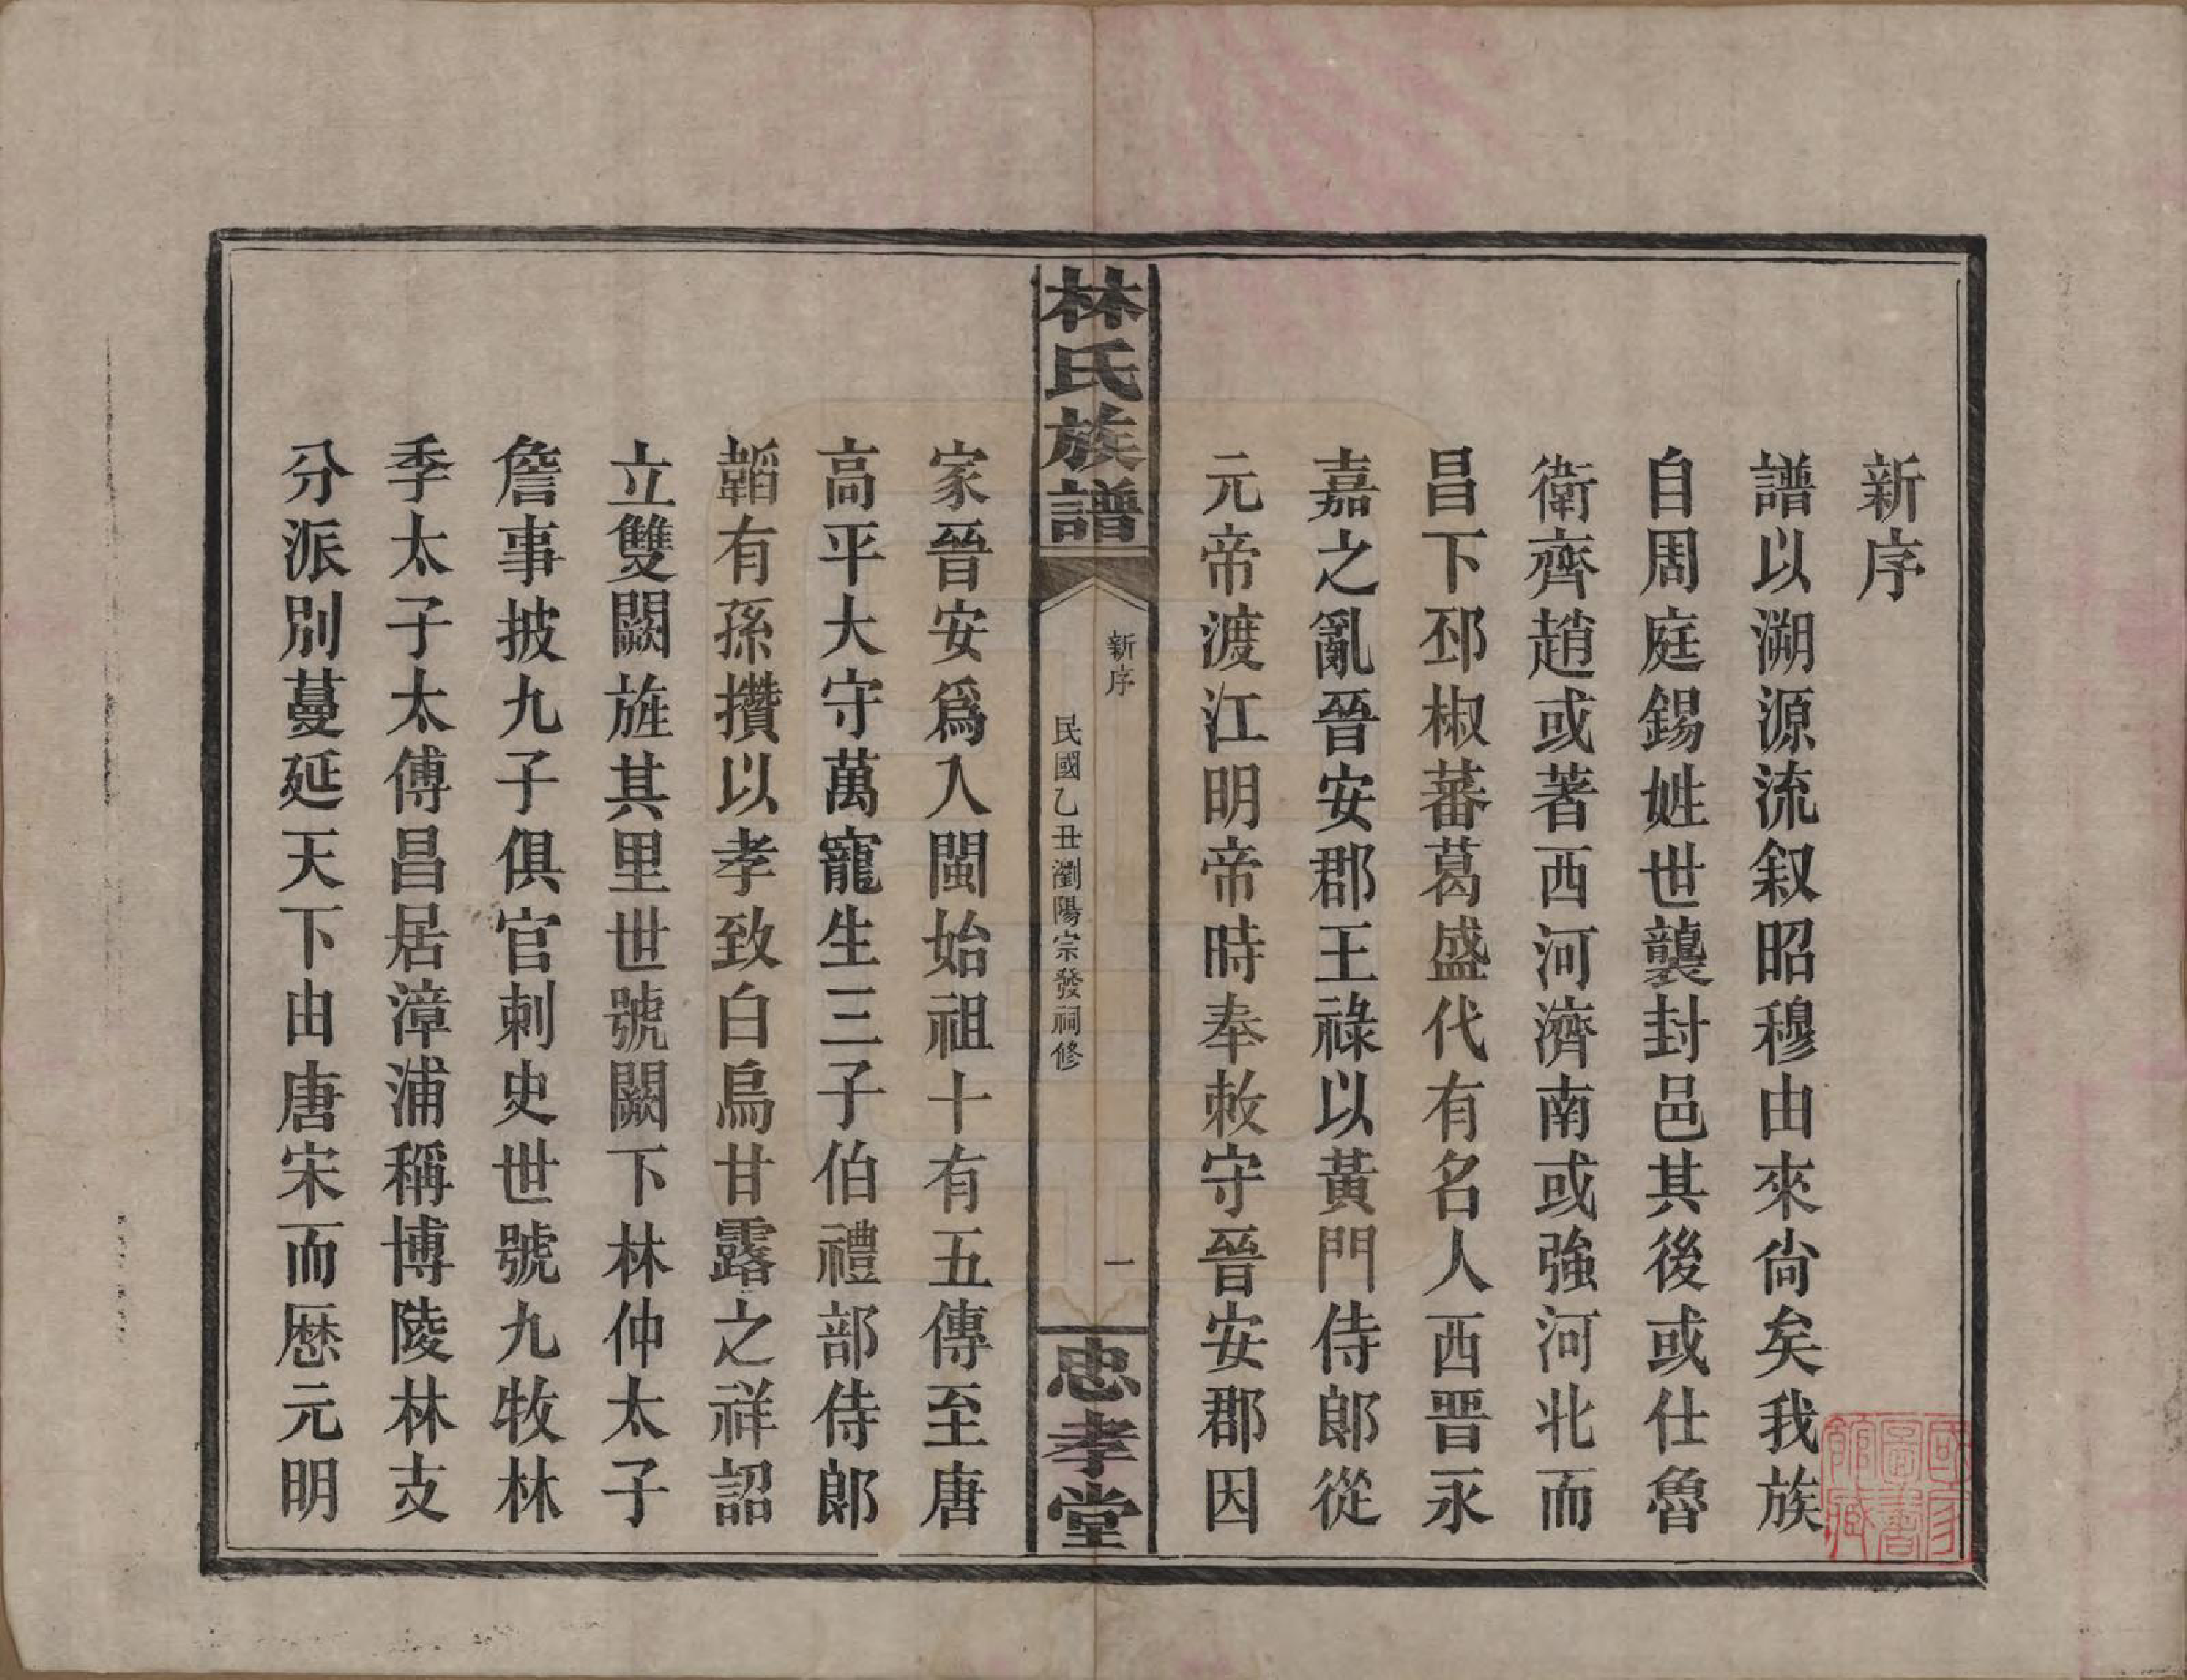 新序
譜以溯源流叙昭穆由來尙矣我族
自周庭錫姓世襲封邑其後或仕魯
衛齊趙或著西河濟南或強河北而
昌下邳椒蕃葛盛代有名人西晋永
嘉之亂晉安郡王祿以黃門侍郎從
元帝渡江明帝時奉敕守晉安郡因
林氏族譜
新序
一
民國乙丑瀏陽宗發祠修
忠孝堂
家晉安爲入閩始祖十有五傳至唐
高平大守萬寵生三子伯禮部侍郎
韜有孫攢以孝致白烏甘露之祥詔
立雙闕旌其里世號闕下林仲太子
詹事披九子俱官刺史世號九牧林
季太子太傅昌居漳浦稱博陵林支
分派別蔓延天下由唐宋而歷元明
國家圖書館藏